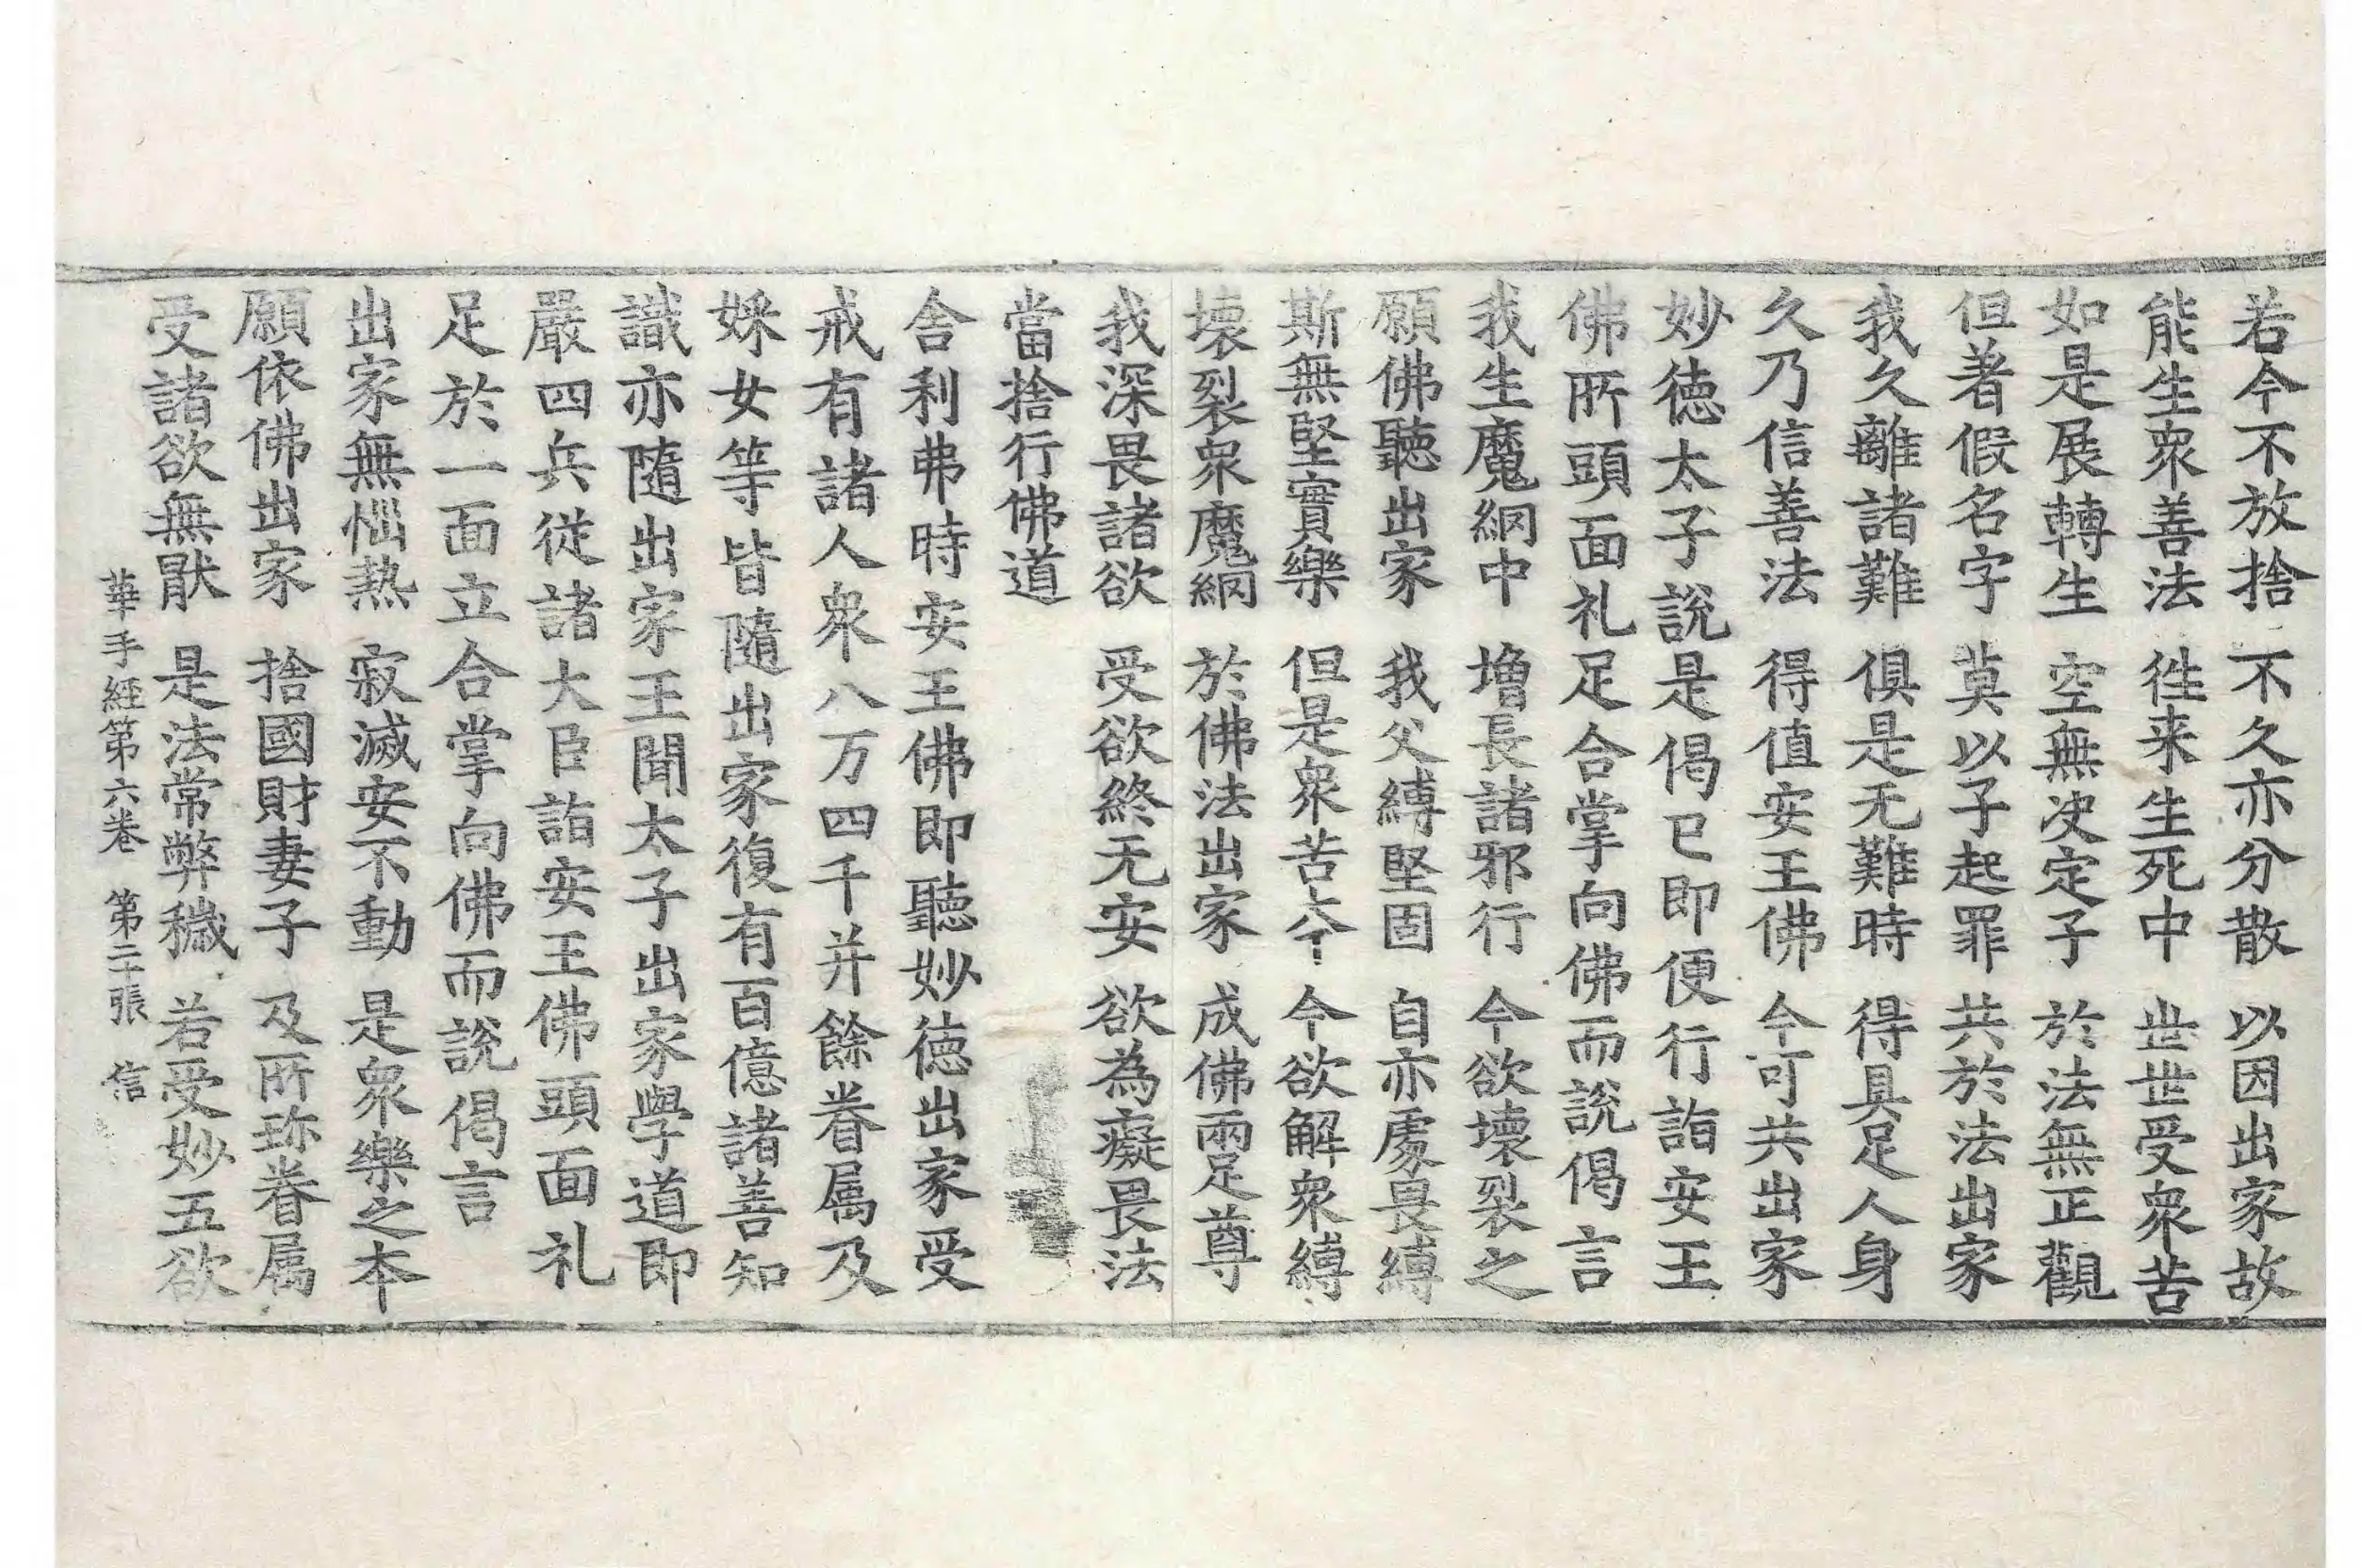 若今不放捨　不久亦分散　以因出家故
能生衆善法　徃来生死中　世世受衆苦
如是展轉生　空無决定子　於法無正觀
但著假名字　莫以子起罪　共於法出家
我久離諸難　俱是无難時　得具足人身
久乃信善法　得值安王佛　今可共出家
妙徳太子說是偈已即便行詣安王
佛所頭面礼足合掌向佛而說偈言
我生魔網中　增長諸邪行　今欲壞裂之
願佛聽出家　我父縛堅固　自亦處畏縛
斯無堅實樂　但是衆苦本　今欲解衆縛
壞裂衆魔網　於佛法出家　成佛兩足尊
我深畏諸欲　受欲終无安　欲為癡畏法
當捨行佛道
舍利弗時安王佛即聽妙徳出家受
戒有諸人衆八万四千并餘眷属及
婇女等皆隨出家復有百億諸善知
識亦隨出家王聞太子出家學道即
嚴四兵従諸大臣詣安王佛頭面礼
足於一面立合掌向佛而說偈言
出家無惱熱　寂滅安不動　是衆樂之本
願依佛出家　捨國財妻子　及所珎眷属
受諸欲無猒　是法常弊穢　若受妙五欲
華手經第六卷　第二十張　信